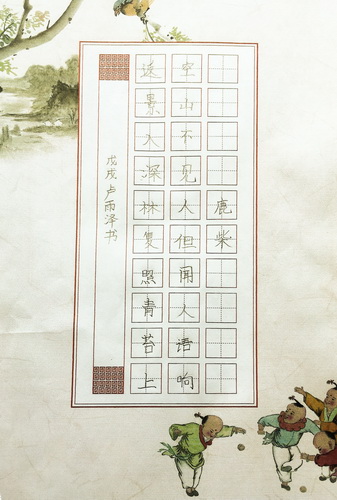 鹿柴
空山不见人但闻人语响
返景入深林复照青苔上
戊戌卢雨泽书